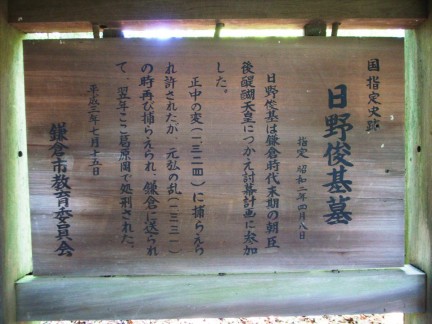 国指定史跡
日野俊基墓
指定 昭和二年四月八日
日野俊基は鎌倉時代末期の朝臣
後醍醐天皇につかえ討幕計画に参加
した。
正中の変(一三二四)に捕らえら
れ許されたが、元弘の乱(一三三一)
の時再び捕らえられ、鎌倉に送られ
て、翌年ここ葛原岡で処刑された。
平成三年七月十五日
鎌倉市教育委員会